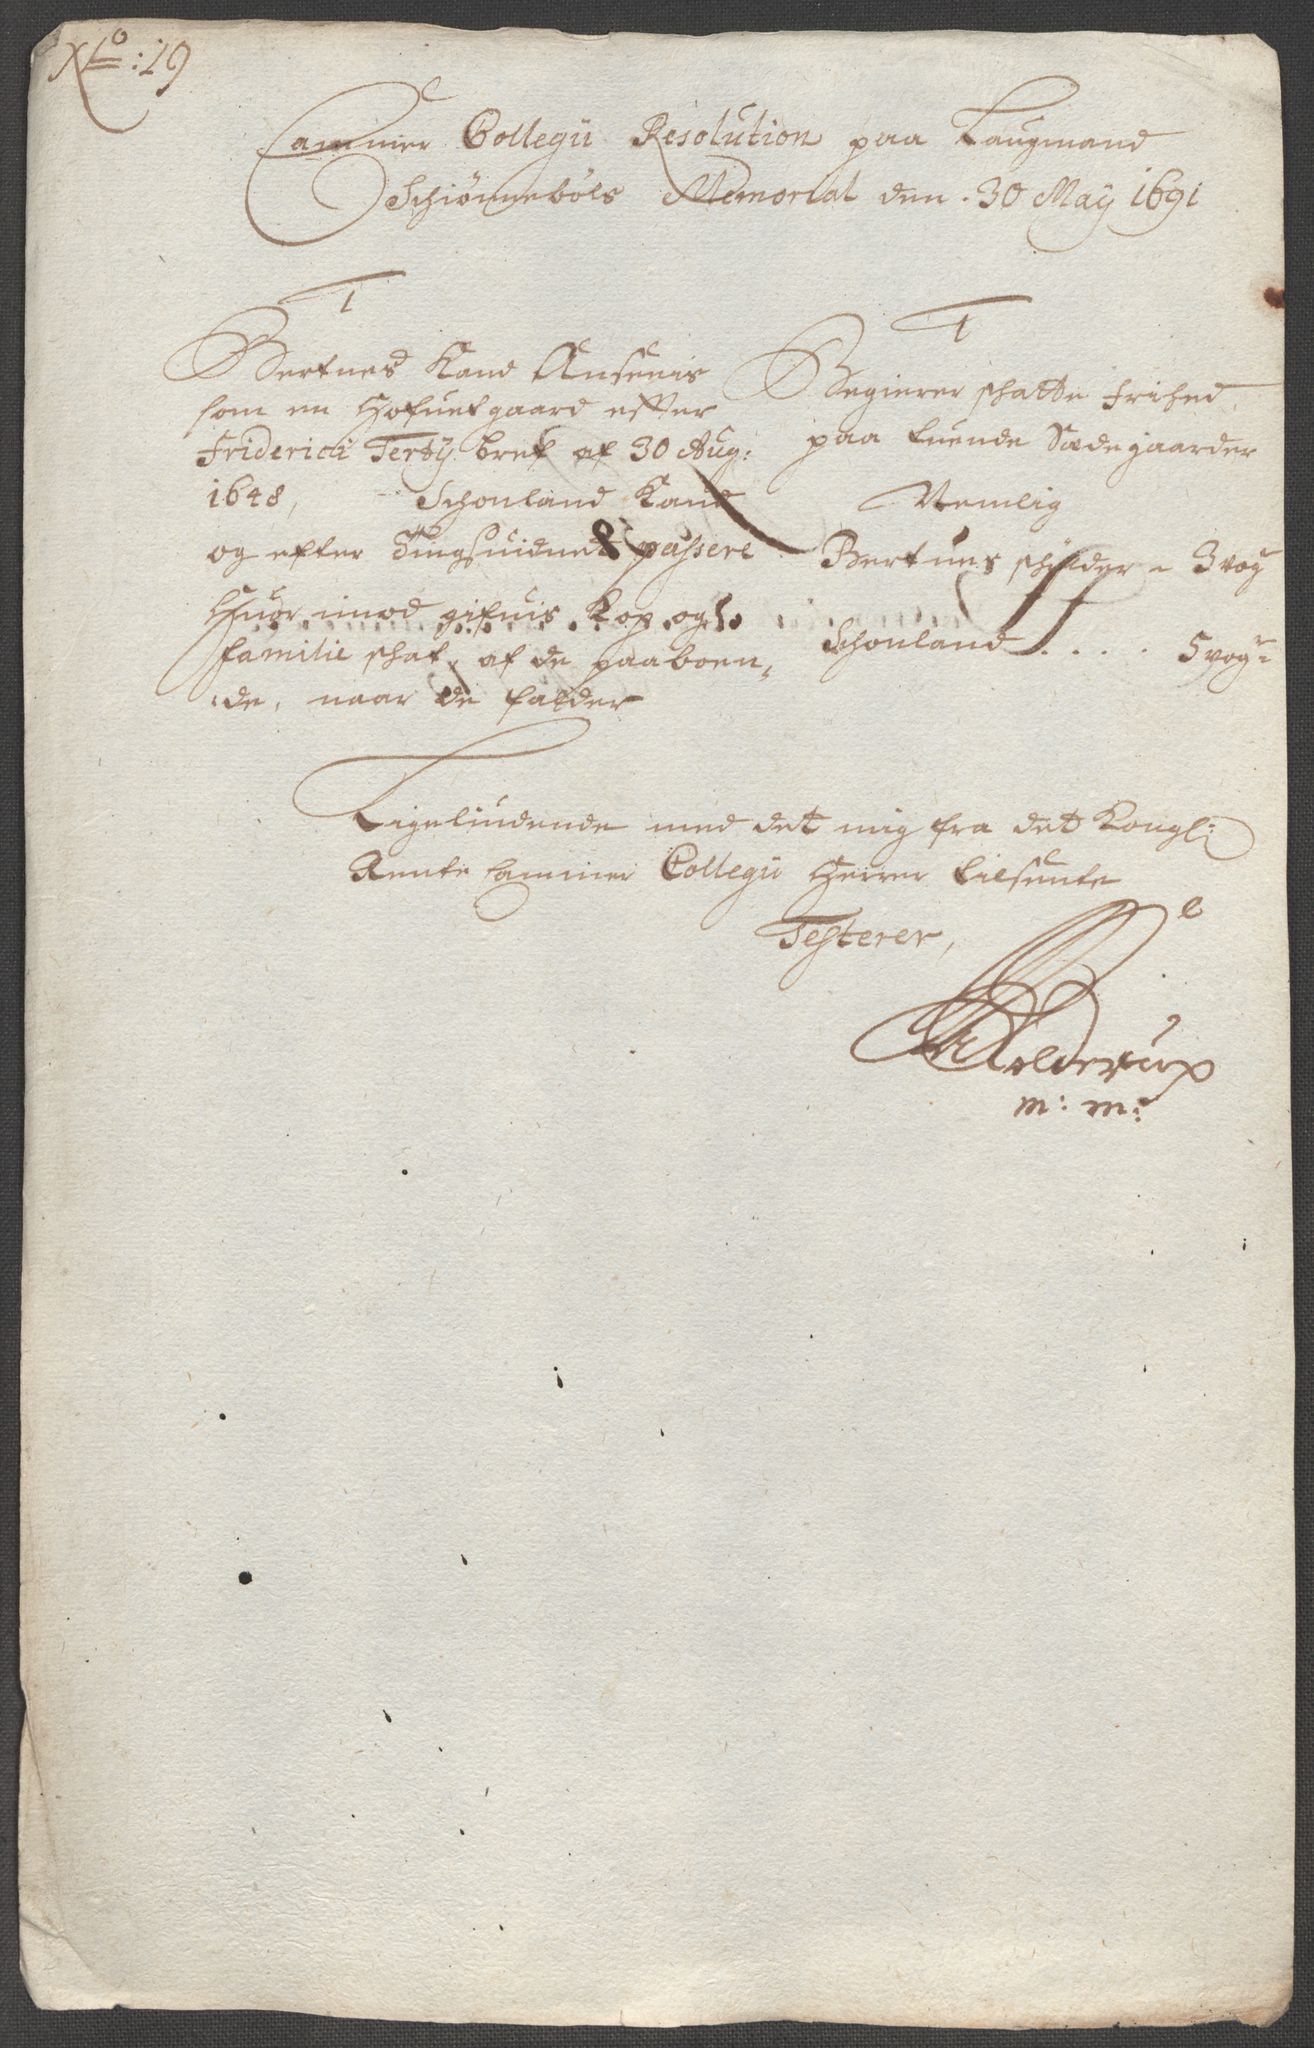 No: 19
Cammer Collegii Resolution paa Laugmand
Schiønnebøls Memorial den 30 May 1691
1
Bertnes Kand Ansees
som en Hofuetgaard efter
Friderici Terty bref af 30 Aug:
1648, Schonland Kand
og efter Tingsuidnet passere
Huor imod gifuis Kop og
familie skat, af de paaboen„
de, naar de falder
1
Begierer skatte frihed
paa tuende Sædegaarder
Nemlig
Bertnes skylder - 3 vog
Schonland . . . . 5 vog:
Ligelydende med det mig fra det Kongl:
Rente Cammer Collegii Herrer tilsente
Testerer,
Holderup
m: m: